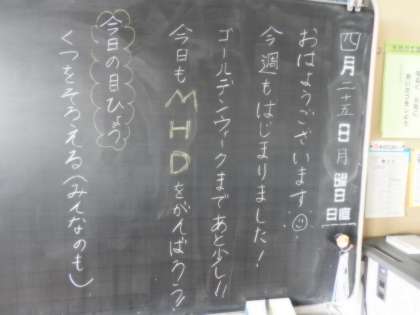 四月二十五日月曜日
日直
おはようございます
今週もはじまりました!
ゴールデンウィークまであと少し!!
今日もMHDをがんばろう!
今日の目ひょう
くつをそろえる(みんなのも)